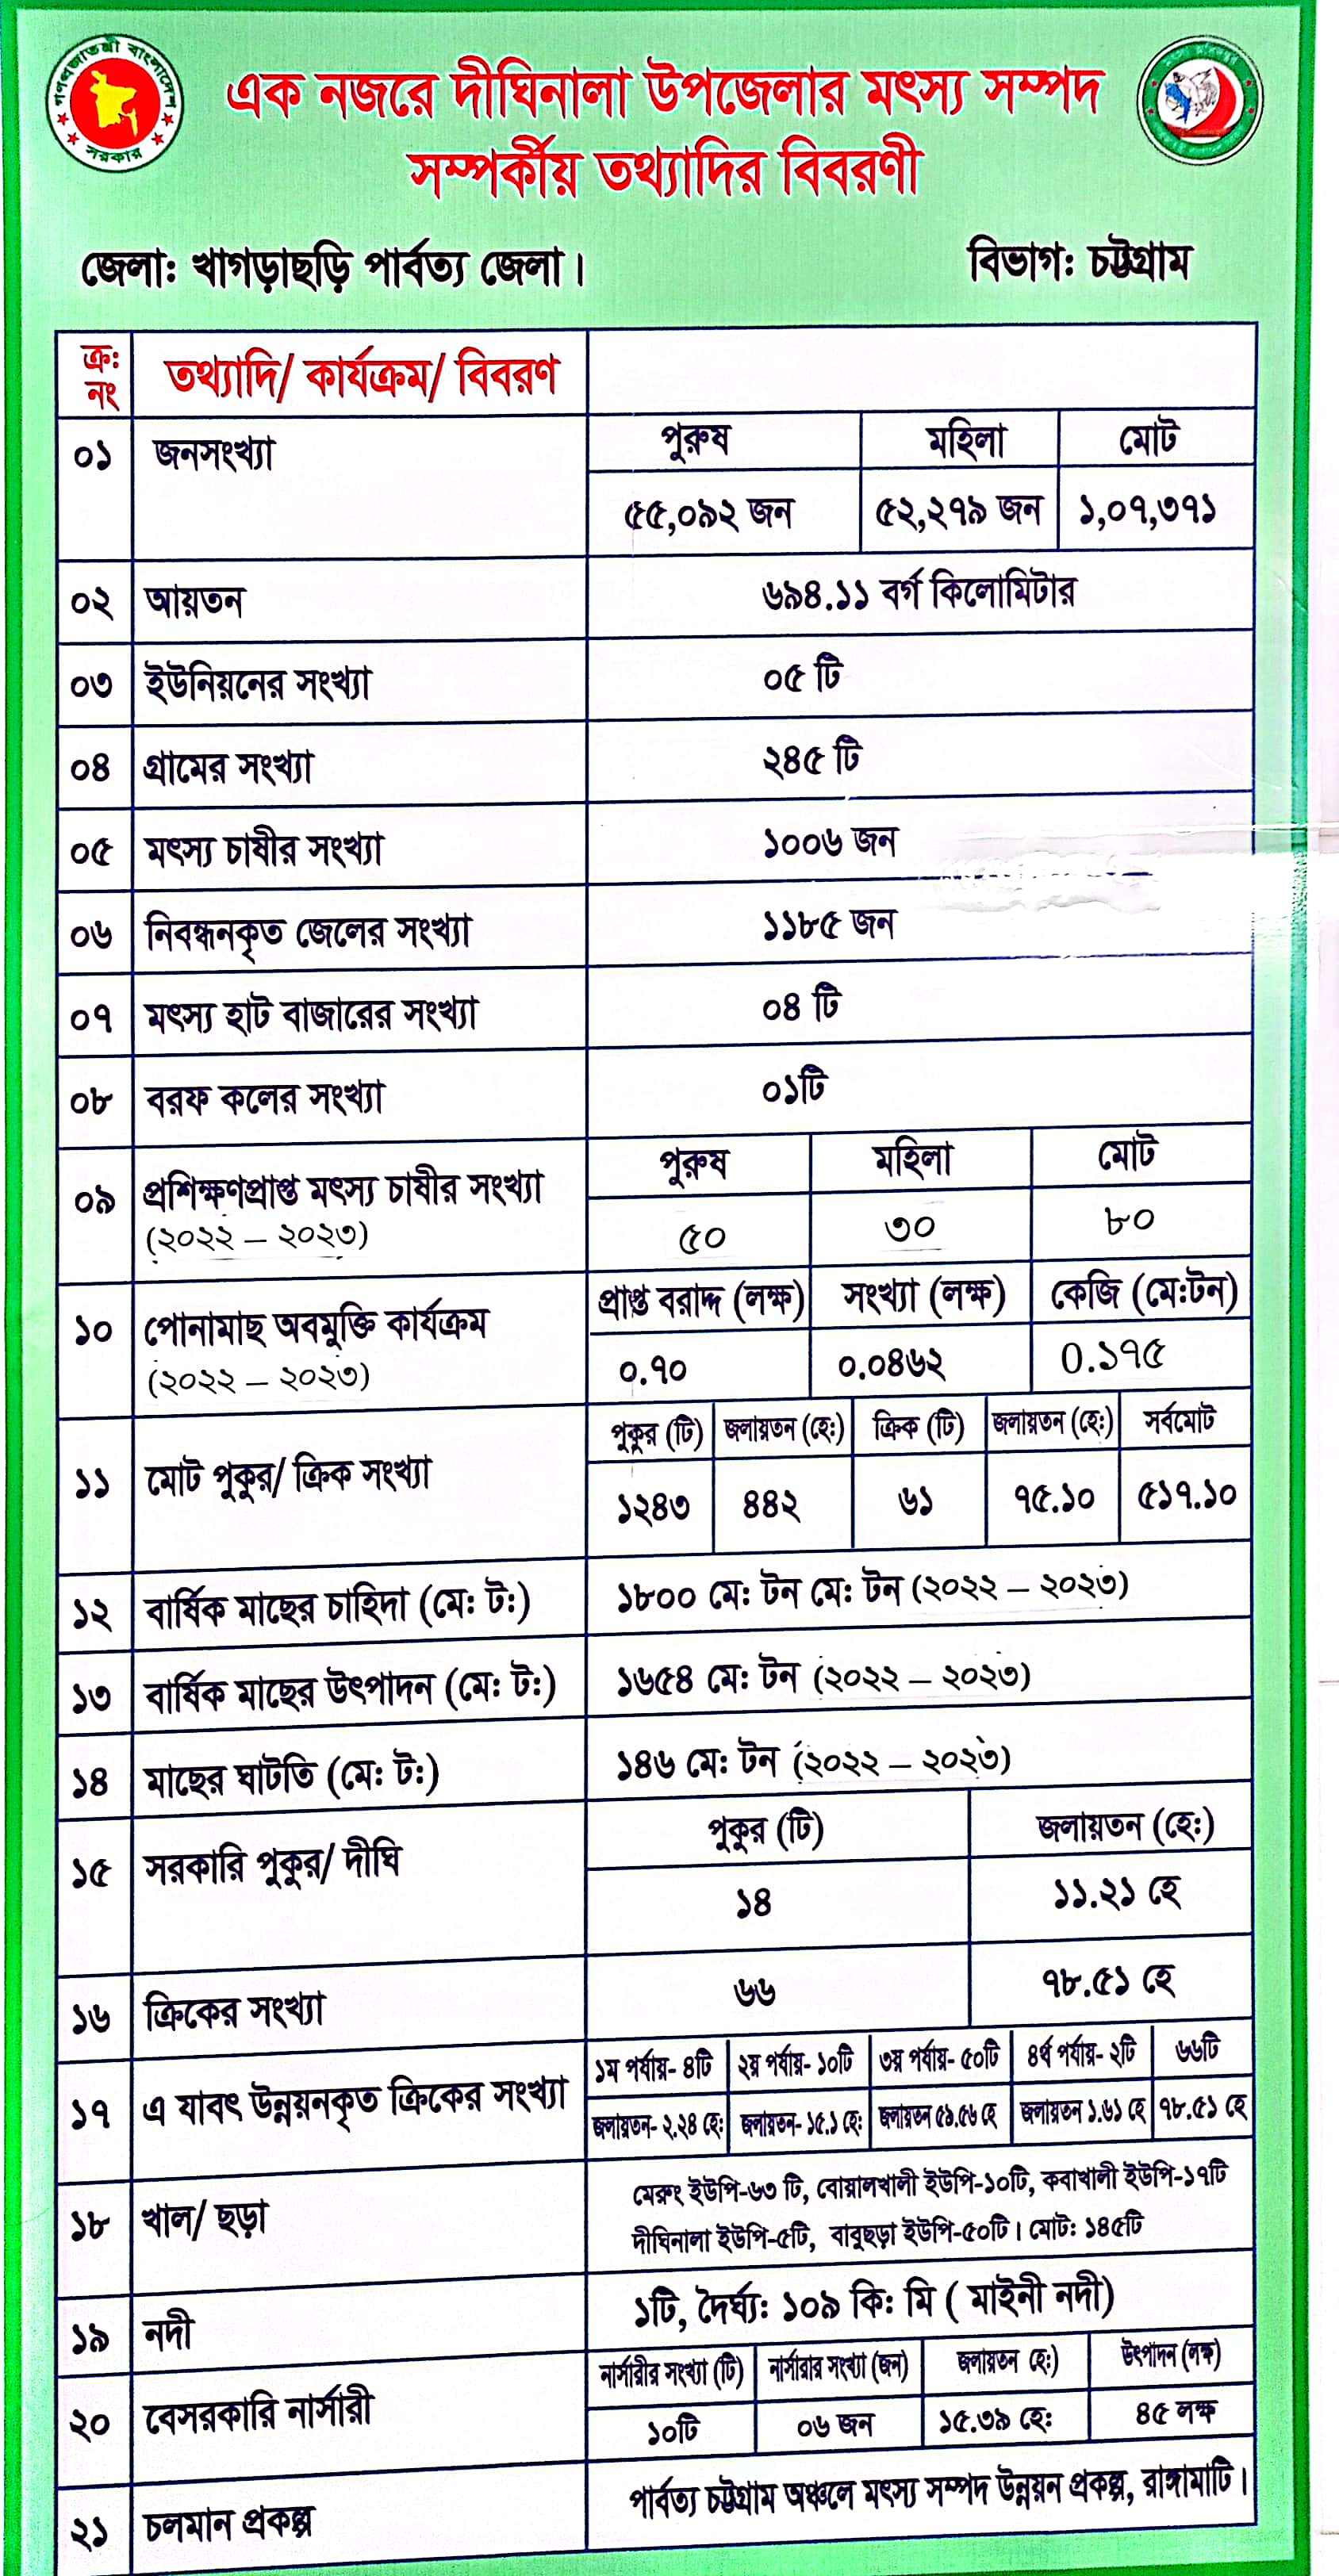 গণপ্রজাতন্ত্রী বাংলাদেশ
সরকার
এক নজরে দীঘিনালা উপজেলার মৎস্য সম্পদ
সম্পর্কীয় তথ্যাদির বিবরণী
জেলা: খাগড়াছড়ি পার্বত্য জেলা। বিভাগ: চট্টগ্রাম
ক্র: নং তথ্যাদি/ কার্যক্রম/ বিবরণ
০১ জনসংখ্যা পুরুষ মহিলা মোট
৫৫,০৯২ জন ৫২,২৭৯ জন ১,০৭,৩৭১
০২ আয়তন ৬৯৪.১১ বর্গ কিলোমিটার
০৩ ইউনিয়নের সংখ্যা ০৫ টি
০৪ গ্রামের সংখ্যা ২৪৫ টি
০৫ মৎস্য চাষীর সংখ্যা ১০০৬ জন
০৬ নিবন্ধনকৃত জেলের সংখ্যা ১১৮৫ জন
০৭ মৎস্য হাট বাজারের সংখ্যা ০৪ টি
০৮ বরফ কলের সংখ্যা ০১টি
০৯ প্রশিক্ষণপ্রাপ্ত মৎস্য চাষীর সংখ্যা পুরুষ মহিলা মোট
(২০২২ – ২০২৩) ৫০ ৩০ ৮০
১০ পোনামাছ অবমুক্তি কার্যক্রম প্রাপ্ত বরাদ্দ (লক্ষ) সংখ্যা (লক্ষ) কেজি (মে:টন)
(২০২২ – ২০২৩) ০.৭০ ০.০৪৬২ 0.১৭৫
১১ মোট পুকুর/ ক্রিক সংখ্যা পুকুর (টি) জলায়তন (হে:) ক্রিক (টি) জলায়তন (হে:) সর্বমোট
১২৪৩ ৪৪২ ৬১ ৭৫.১০ ৫১৭.১০
১২ বার্ষিক মাছের চাহিদা (মে: ট:) ১৮০০ মে: টন মে: টন (২০২২ – ২০২৩)
১৩ বার্ষিক মাছের উৎপাদন (মে: ট:) ১৬৫৪ মে: টন (২০২২ – ২০২৩)
১৪ মাছের ঘাটতি (মে: ট:) ১৪৬ মে: টন (২০২২ – ২০২৩)
১৫ সরকারি পুকুর/ দীঘি পুকুর (টি) জলায়তন (হে:)
১৪ ১১.২১ হে
১৬ ক্রিকের সংখ্যা ৬৬ ৭৮.৫১ হে
১৭ এ যাবৎ উন্নয়নকৃত ক্রিকের সংখ্যা ১ম পর্যায়- ৪টি ২য় পর্যায়- ১০টি ৩য় পর্যায়- ৫০টি ৪র্থ পর্যায়- ২টি ৬৬টি
জলায়তন- ২.২৪ হে: জলায়তন- ১৫.১ হে: জলায়তন ৫৯.৫৬ হে জলায়তন ১.৬১ হে ৭৮.৫১ হে
১৮ খাল/ ছড়া মেরুং ইউপি-৬৩ টি, বোয়ালখালী ইউপি-১০টি, কবাখালী ইউপি-১৭টি
দীঘিনালা ইউপি-৫টি, বাবুছড়া ইউপি-৫০টি। মোট: ১৪৫টি
১৯ নদী ১টি, দৈর্ঘ্য: ১০৯ কি: মি ( মাইনী নদী)
২০ বেসরকারি নার্সারী নার্সারীর সংখ্যা (টি) নার্সারার সংখ্যা (জন) জলায়তন হে:) উৎপাদন (লক্ষ)
১০টি ০৬ জন ১৫.৩৯ হে: ৪৫ লক্ষ
২১ চলমান প্রকল্প পার্বত্য চট্টগ্রাম অঞ্চলে মৎস্য সম্পদ উন্নয়ন প্রকল্প, রাঙ্গামাটি।